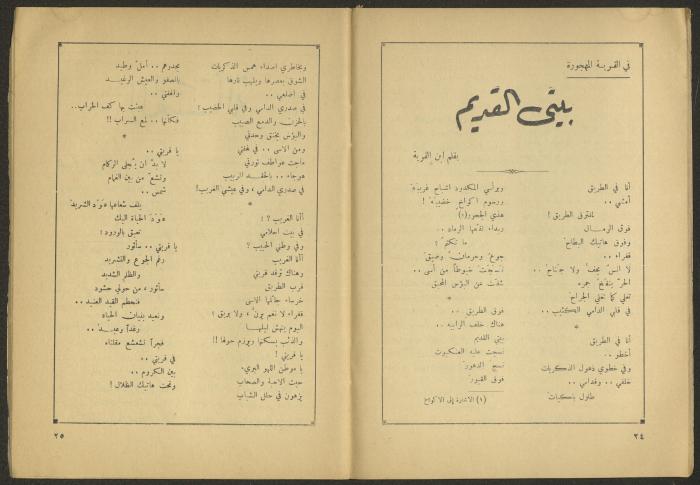 في القرية المهجورة
بيتي القديم
بقلم ابن القرية
انا في الطريق
أمشي ..
لمفترق الطريق !
فوق الرمال
وفوق هاتيك البطاح
قفراء ..
لا انس يخف ولا جناح ..
الحر ينفح جمره
تغلي كما تغلي الجراح
في قلبي الدامي الكئيب ..
*
انا في الطريق
أخطو ..
وفي خطوي ذهول الذكريات
خلفي .. وقدامي ..
طلول باكيات
وبرأسي المكدود اشباح غريبة
ورسوم اكواخ خضيبة !
هذي الجحور (١)
ربداء تلفها الرماد ..
ما تكتم
جوع وحرمان وضيق
نسجت خيوطاً من أسى ..
شفت عن البؤس المحيق
*
فوق الطريق ..
هناك خلف الرابية ..
بيتي القديم
نسجت عليه العنكبوت
نسج الدهور
فوق القبور
(١) الاشارة إلى الاكواخ
٢٤
وبخاطري اصداء همس الذكريات
الشوق يعصرها ويلهب نارها
في اضلعي ..
في صدري الدامي وفي قلبي الخصيب !
بالحزن والدمع الصبيب
والبؤس يخنق وحدتي
ومن الاسى .. في لهفتي
ماجت عواطف ثورتي
هوجاء .. بالحقد الرهيب
في صدري الدامي ، وفي عيشي الغريب !
*
أأنا الغريب ؟ !
في بيت احلامي
وفي وطني الحبيب ؟
أأنا الغريب
وهناك ترقد قريتي
قرب الطريق
خرساء جللها الاسى
قفراء لا نغم يرن ، ولا بريق !
اليوم ينهش ليلها
والذئب يسكنها ويزرم حولها !!
يا قريتي !
يا موطن اللهو البريء
حيث الاحبة والصحاب
يزهون في حلل الشباب
يحدوهم .. أمل وطيد
بالصفو والعيش الرغيد
والهفتي ..
عبثت بها كف الخراب..
فكأنها .. لمع السراب !!
*
يا قريتي ..
لا بد ان يجلى الركام
وتشع من بين الغمام
شمس ..
يلف شعاعها عَوْد الشريد
عَوْدَ الحياة اليك
تعبق بالورود !
يا قريتي .. سأثور
رغم الجوع والتشريد
والظلم الشديد
سأثور ، من حولي حشود
فنحطم القيد العنيد ..
ونعيد بنيان الحياة
رغداً وعيد ..
فجراً تشعشع مقلتاه
في قريتي ..
بين الكروم ..
وتحت هاتيك الظلال !
٢٥